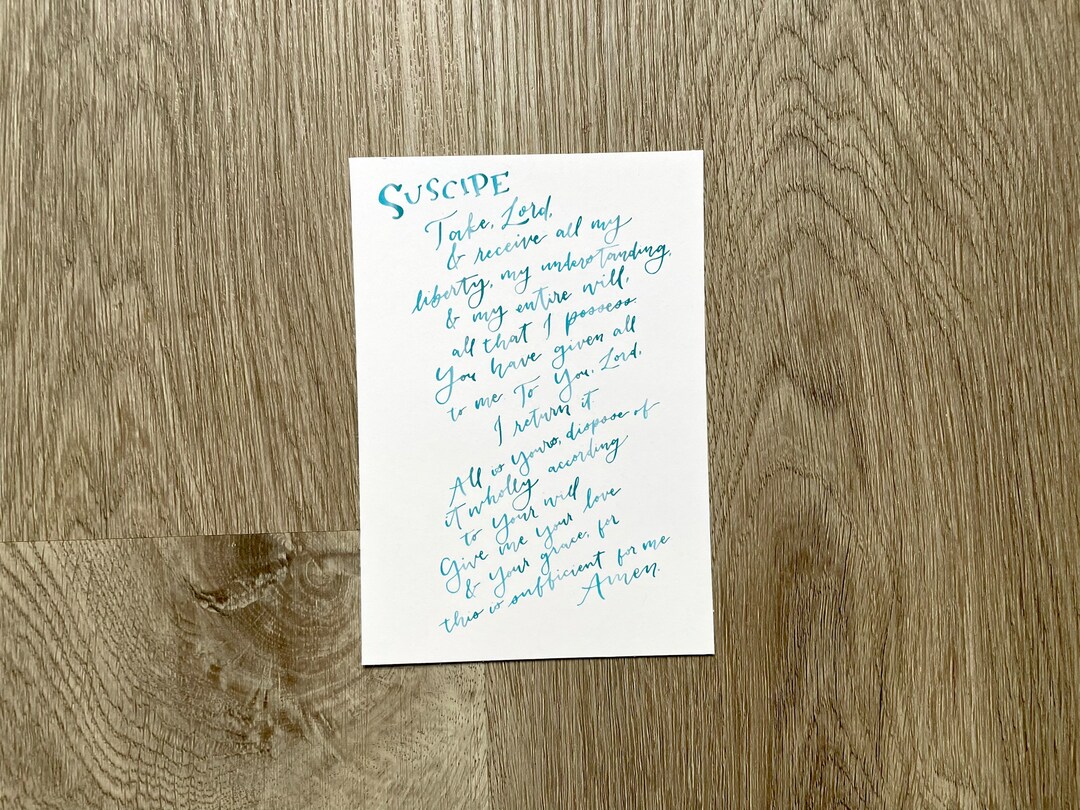 SUSCIPE
Take, Lord,
& receive all my
liberty, my understanding,
& my entire will,
all that I possess.
You have given all
to me To You, Lord,
I return it
All is yours, dispose of
it wholly according
to your will
Give me your love
& your grace, for
this is sufficient for me
Amen.